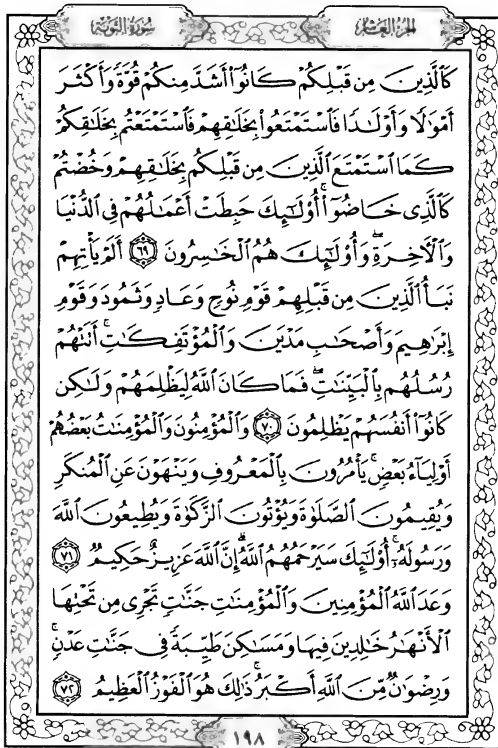 الجزء العاشر
سورة التوبة
كَالَّذِينَ مِن قَبْلِكُمْ كَانُوٓا۟ أَشَدَّ مِنكُمْ قُوَّةً وَأَكْثَرَ
أَمْوَٰلًا وَأَوْلَـٰدًا فَٱسْتَمْتَعُوا۟ بِخَلَـٰقِهِمْ فَٱسْتَمْتَعْتُم بِخَلَـٰقِكُمْ
كَمَا ٱسْتَمْتَعَ ٱلَّذِينَ مِن قَبْلِكُم بِخَلَـٰقِهِمْ وَخُضْتُمْ
كَٱلَّذِى خَاضُوٓا۟ ۚ أُو۟لَـٰٓئِكَ حَبِطَتْ أَعْمَـٰلُهُمْ فِى ٱلدُّنْيَا
وَٱلْـَٔاخِرَةِ ۖ وَأُو۟لَـٰٓئِكَ هُمُ ٱلْخَـٰسِرُونَ ٦٩ أَلَمْ يَأْتِهِمْ
نَبَأُ ٱلَّذِينَ مِن قَبْلِهِمْ قَوْمِ نُوحٍ وَعَادٍ وَثَمُودَ وَقَوْمِ
إِبْرَٰهِيمَ وَأَصْحَـٰبِ مَدْيَنَ وَٱلْمُؤْتَفِكَـٰتِ ۚ أَتَتْهُمْ
رُسُلُهُم بِٱلْبَيِّنَـٰتِ ۖ فَمَا كَانَ ٱللَّهُ لِيَظْلِمَهُمْ وَلَـٰكِن
كَانُوٓا۟ أَنفُسَهُمْ يَظْلِمُونَ ٧٠ وَٱلْمُؤْمِنُونَ وَٱلْمُؤْمِنَـٰتُ بَعْضُهُمْ
أَوْلِيَآءُ بَعْضٍ ۚ يَأْمُرُونَ بِٱلْمَعْرُوفِ وَيَنْهَوْنَ عَنِ ٱلْمُنكَرِ
وَيُقِيمُونَ ٱلصَّلَوٰةَ وَيُؤْتُونَ ٱلزَّكَوٰةَ وَيُطِيعُونَ ٱللَّهَ
وَرَسُولَهُۥٓ ۚ أُو۟لَـٰٓئِكَ سَيَرْحَمُهُمُ ٱللَّهُ ۗ إِنَّ ٱللَّهَ عَزِيزٌ حَكِيمٌ ٧١
وَعَدَ ٱللَّهُ ٱلْمُؤْمِنِينَ وَٱلْمُؤْمِنَـٰتِ جَنَّـٰتٍ تَجْرِى مِن تَحْتِهَا
ٱلْأَنْهَـٰرُ خَـٰلِدِينَ فِيهَا وَمَسَـٰكِنَ طَيِّبَةً فِى جَنَّـٰتِ عَدْنٍ ۚ
وَرِضْوَٰنٌ مِّنَ ٱللَّهِ أَكْبَرُ ۚ ذَٰلِكَ هُوَ ٱلْفَوْزُ ٱلْعَظِيمُ ٧٢
١٩٨